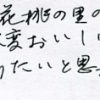 花桃の里の
変おいしい
りたいと思